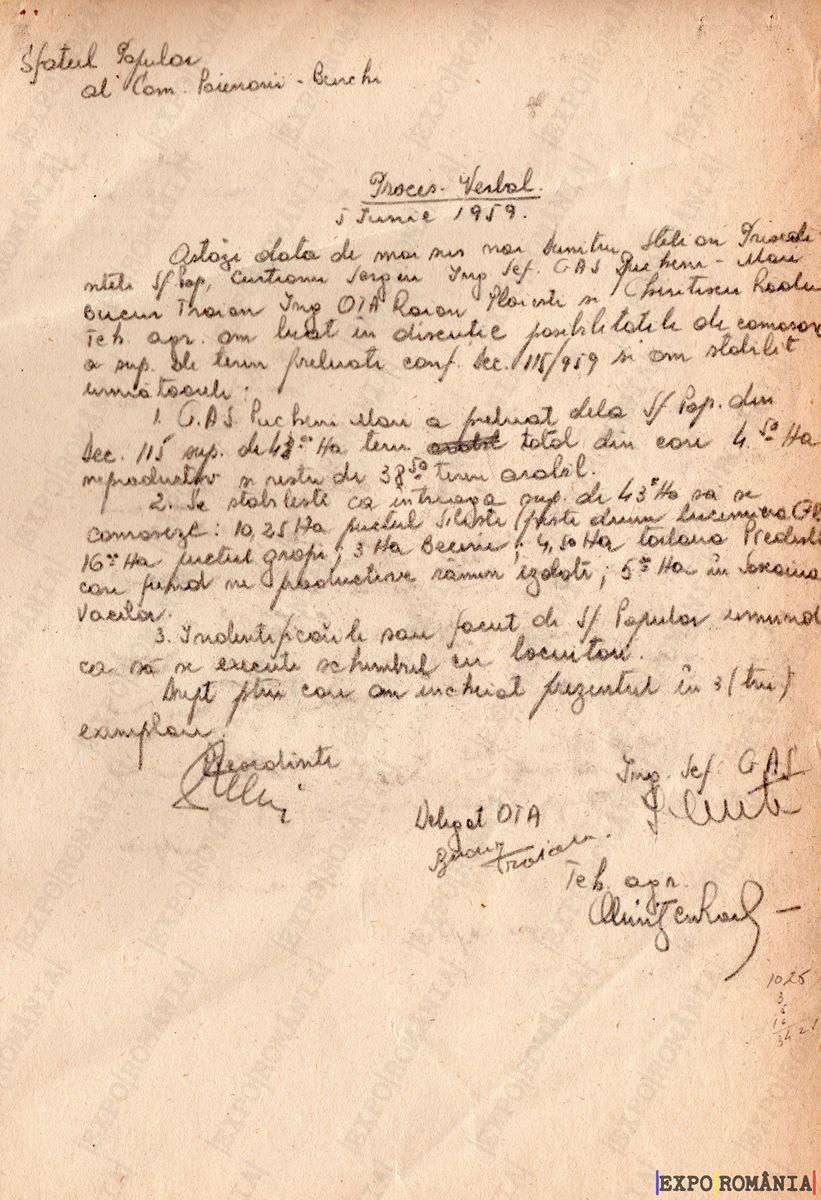 Sfatul Popular
al Com. Poienarii - Burchi
Proces-Verbal.
5 Iunie 1959.
Astăzi data de mai sus noi Dumitru Stelian Prisedi
ntele Sf Pop, Sergiu Ing Sef. GAS Pucheni-Mari
Bucur Troian Ing OTA Raion Ploiesti si Radu
Teh. agr. am luat în discutie posibilitatile de comasar
a sup. de teren preluate conf. Dec. 115/959 si am stabilit
următoarele:
1. G.A.S Pucheni Mari a preluat dela Sf Pop. din
Dec. 115 sup. de 43 00 Ha teren arabil total din care 4.50 Ha
neproductiv si restu de 38 50 teren arabil.
2. Se stabileste ca intreaga sup. de 43 Ha să se
comaseze: 10,25 Ha punctul Siliste (peste drum
16 00 Ha punctul gropi; 3 Ha ; 4,50 Ha tarlaua
care fiind ne productive rămîn izolate; 5 00 Ha în
Vacilor.
3. Indentificările sau facut de Sf Popular urmînd
ca să se execute schimbul cu locuitori.
Drept ptru care am incheiat prezentul în 3 (trei)
exemplare.
Presedinte
Ing. Sef. GAS
Delegat OTA
Bucur Troian
Teh. agr.
1025
3
5
16
34 2
EXPO ROMÂNIA